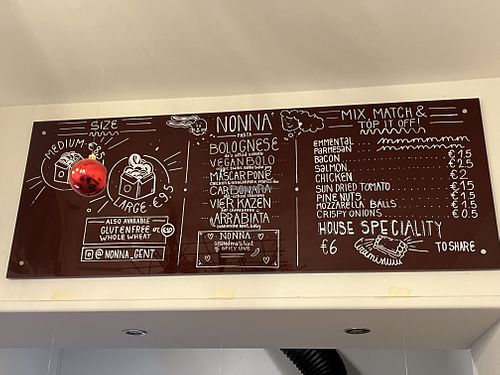 SIZE
MEDIUM €8.5
LARGE €9.5
ALSO AVAILABLE
GLUTENFREE OR
WHOLE WHEAT
@NONNA_GENT
NONNA
PASTA
BOLOGNESE
VEGANBOLO
MASCARPONE
CARBONARA
VIER KAZEN
ARRABIATA
NONNA
MIX, MATCH &
TOP IT OFF!
EMMENTAL
PARMESAN
BACON € 1.5
SALMON € 2.5
CHICKEN € 2
SUN DRIED TOMATO € 1.5
PINE NUTS € 1.5
MOZZARELLA BALLS € 1.5
CRISPY ONIONS € 0.5
HOUSE SPECIALITY
€6 TO SHARE